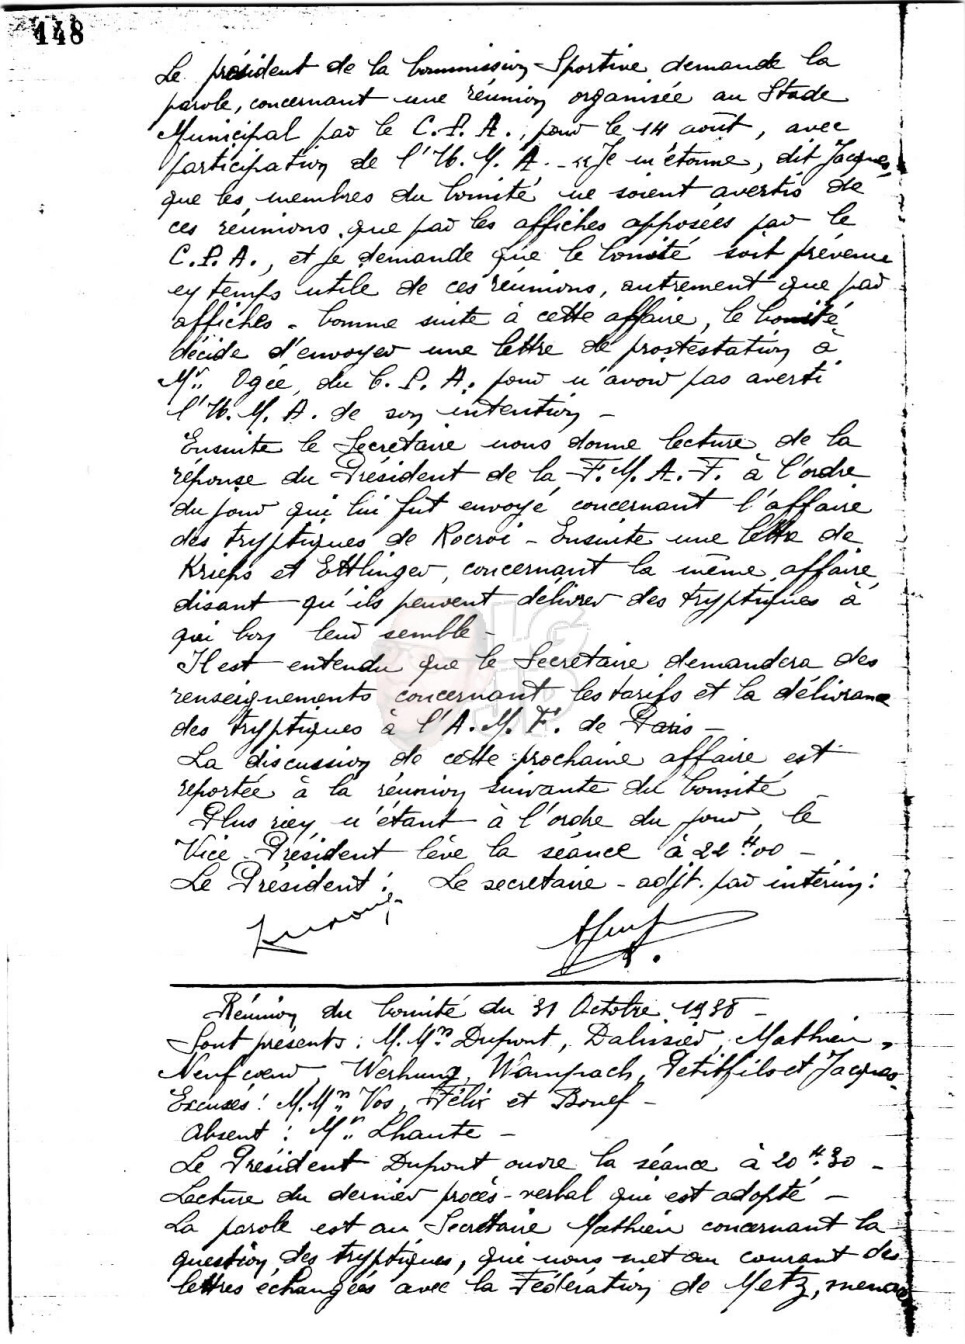 148
Le président de la Commission Sportive demande la
parole, concernant une réunion organisée au Stade
Municipal par le C.P.A., pour le 14 août, avec
participation de l'U.M.A. - "Je m'étonne, dit Jacques,
que les membres du Comité ne soient avertis de
ces réunions, que par les affiches apposées par le
C.P.A., et je demande que le Comité soit prévenu
en temps utile de ces réunions, autrement que par
affiches - Comme suite à cette affaire, le Comité
décide d'envoyer une lettre de prostestation à
Mr Ogée, du C.P.A. pour n'avoir pas averti
l'U.M.A. de son intention -
Ensuite le Secrétaire nous donne lecture de la
réponse du Président de la F.M.A.F. à l'ordre
du jour qui lui fut envoyé concernant l'affaire
des tryptiques de Rocroi - Ensuite une lettre de
Krieps et Ettlinger, concernant la même affaire,
disant qu'ils peuvent délivrer des tryptiques à
qui bon leur semble -
Il est entendu que le Secrétaire demandera des
renseignements concernant les tarifs et la délivrance
des tryptiques à l'A.M.F. de Paris -
La discussion de cette prochaine affaire est
reportée à la réunion suivante du Comité -
Plus rien n'étant à l'ordre du jour, le
Vice-Président lève la séance à 22 H 00 -
Le Président : Le secrétaire-adjt. par intérim :
Réunion du Comité du 31 Octobre 1938 -
Sont présents : M.Mrs Dupont, Dalissier, Mathieu,
Neufcoeur, Werhung, Wampach, Petitfils et Jacques.
Excusés : M.Mrs Vos, Félix et Bonef -
Absent : Mr Lhaute -
Le Président Dupont ouvre la séance à 20 H 30 -
Lecture du dernier procès-verbal qui est adopté -
La parole est au Secrétaire Mathieu concernant la
question des tryptiques, qui nous met au courant des
lettres échangées avec la Fédération de Metz,